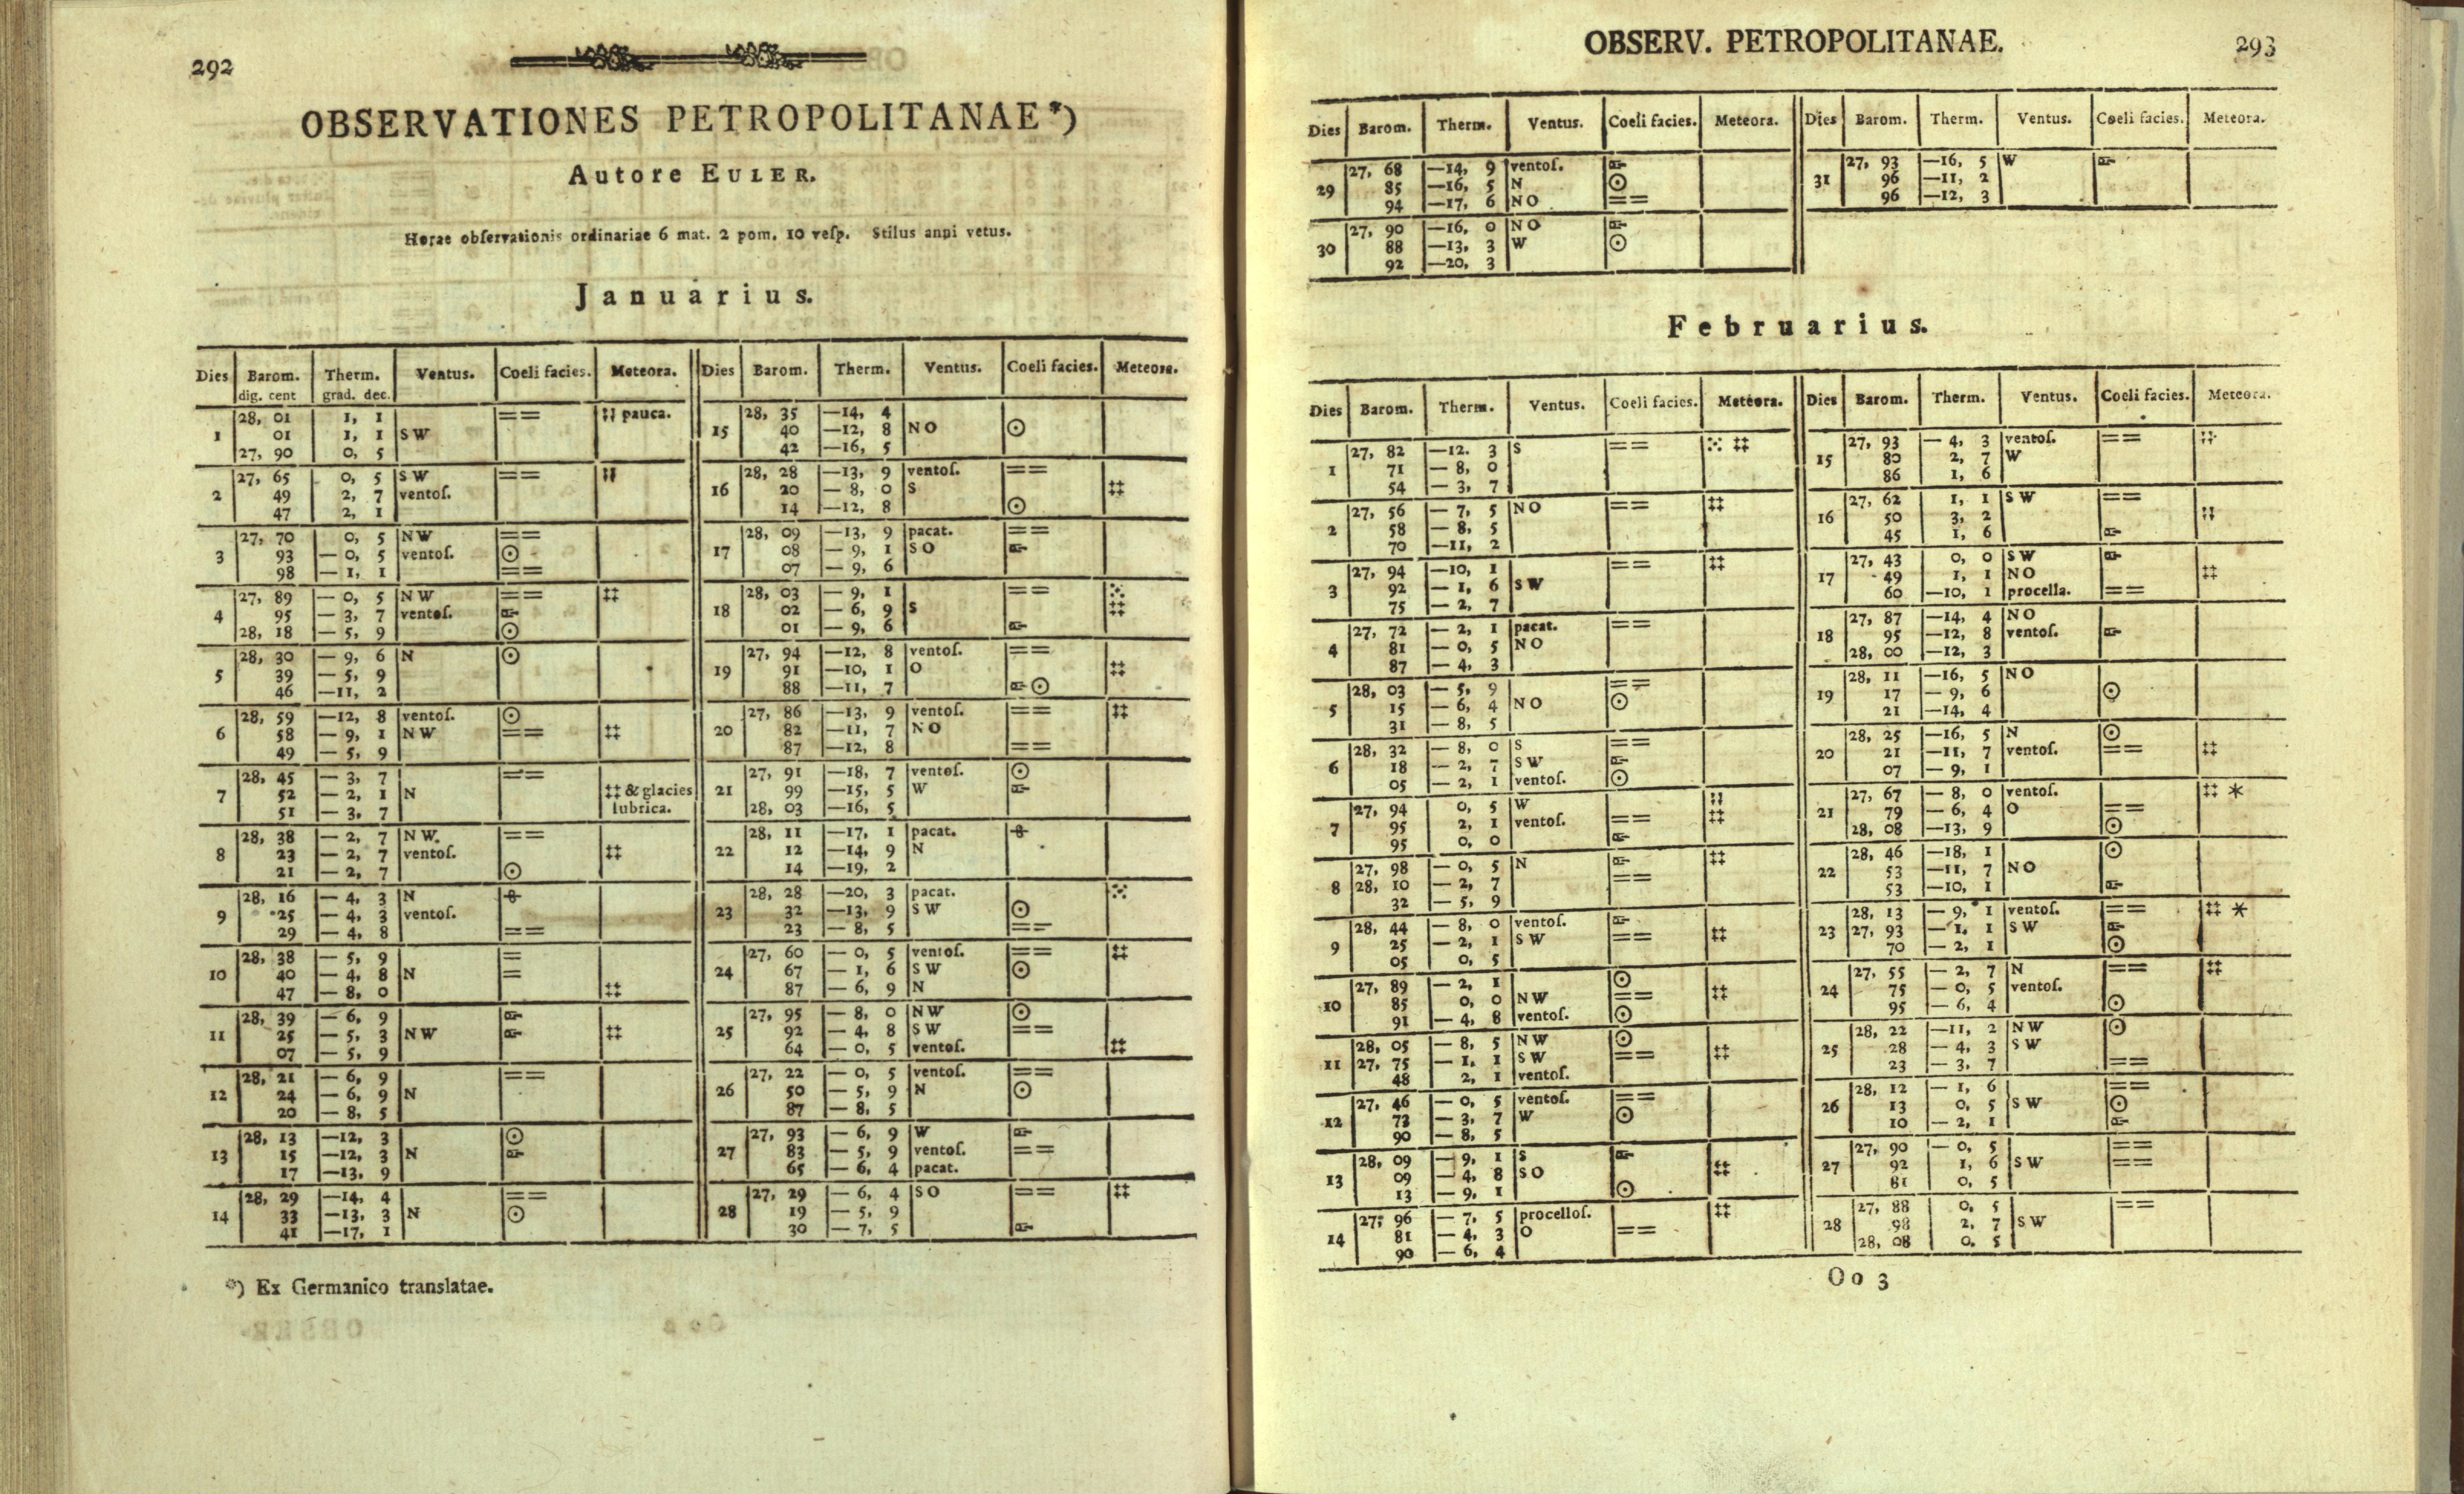 292
OBSERVATIONES PETROPOLITANAE*)
Autore EULER.
Horae obſervationis ordinariae 6 mat. 2 pom. 10 veſp. Stilus anni vetus.
Januarius.
Dies Barom. Therm. Ventus. Coeli facies. Meteora.
dig. cent grad. dec.
28, 01 1, 1 == ⁏⁏ pauca.
1 01 1, 1 SW
27, 90 0, 5
27, 65 0, 5 SW == ⁏⁏
2 49 2, 7 ventoſ.
47 2, 1
27, 70 0, 5 NW ==
3 93 — 0, 5 ventoſ. ⊙
98 — 1, 1 ==
27, 89 — 0, 5 NW == ‡‡
4 95 — 3, 7 ventoſ.
28, 18 — 5, 9 ⊙
28, 30 — 9, 6 N ⊙
5 39 — 5, 9
46 —11, 2
28, 59 —12, 8 ventoſ. ⊙
6 58 — 9, 1 NW == ‡‡
49 — 5, 9
28, 45 — 3, 7 ==
7 52 — 2, 1 N ‡‡ & glacies
51 — 3, 7 lubrica.
28, 38 — 2, 7 NW. ==
8 23 — 2, 7 ventoſ. ‡‡
21 — 2, 7 ⊙
28, 16 — 4, 3 N
9 25 — 4, 3 ventoſ.
29 — 4, 8 ==
28, 38 — 5, 9 =
10 40 — 4, 8 N =
47 — 8, 0 ‡‡
28, 39 — 6, 9
11 25 — 5, 3 NW ‡‡
07 — 5, 9
28, 21 — 6, 9 ==
12 24 — 6, 9 N
20 — 8, 5
28, 13 —12, 3 ⊙
13 15 —12, 3 N
17 —13, 9
28, 29 —14, 4 ==
14 33 —13, 3 N ⊙
41 —17, 1
Dies Barom. Therm. Ventus. Coeli facies. Meteora.
28, 35 —14, 4
15 40 —12, 8 NO ⊙
42 —16, 5
28, 28 —13, 9 ventoſ. ==
16 20 — 8, 0 S ‡‡
14 —12, 8 ⊙
28, 09 —13, 9 pacat. ==
17 08 — 9, 1 SO
07 — 9, 6
28, 03 — 9, 1 == ⁙
18 02 — 6, 9 S ‡‡
01 — 9, 6
27, 94 —12, 8 ventoſ. ==
19 91 —10, 1 O ‡‡
88 —11, 7 ⊙
27, 86 —13, 9 ventoſ. == ‡‡
20 82 —11, 7 NO
87 —12, 8 ==
27, 91 —18, 7 ventoſ. ⊙
21 99 —15, 5 W
28, 03 —16, 5
28, 11 —17, 1 pacat.
22 12 —14, 9 N
14 —19, 2
28, 28 —20, 3 pacat. ⁙
23 32 —13, 9 SW ⊙
23 — 8, 5 ==
27, 60 — 0, 5 ventoſ. == ‡‡
24 67 — 1, 6 SW ⊙
87 — 6, 9 N
27, 95 — 8, 0 NW ⊙
25 92 — 4, 8 SW ==
64 — 0, 5 ventoſ. ‡‡
27, 22 — 0, 5 ventoſ. ==
26 50 — 5, 9 N ⊙
87 — 8, 5
27, 93 — 6, 9 W
27 83 — 5, 9 ventoſ. ==
65 — 6, 4 pacat.
27, 29 — 6, 4 SO == ‡‡
28 19 — 5, 9
30 — 7, 5
*) Ex Germanico translatae.
OBSERV. PETROPOLITANAE. 293
Dies Barom. Therm. Ventus. Coeli facies. Meteora.
27, 68 —14, 9 ventoſ.
29 85 —16, 5 N ⊙
94 —17, 6 NO ==
27, 90 —16, 0 NO
30 88 —13, 3 W ⊙
92 —20, 3
Dies Barom. Therm. Ventus. Coeli facies. Meteora.
27, 93 —16, 5 W
31 96 —11, 2
96 —12, 3
Februarius.
Dies Barom. Therm. Ventus. Coeli facies. Meteora.
27, 82 —12. 3 S == ⁙ ‡‡
1 71 — 8, 0
54 — 3, 7
27, 56 — 7, 5 NO == ‡‡
2 58 — 8, 5
70 —11, 2
27, 94 —10, 1 == ‡‡
3 92 — 1, 6 SW
75 — 2, 7
27, 72 — 2, 1 pacat. ==
4 81 — 0, 5 NO
87 — 4, 3
28, 03 — 5, 9 ==
5 15 — 6, 4 NO ⊙
31 — 8, 5
28, 32 — 8, 0 S ==
6 18 — 2, 7 SW
05 — 2, 1 ventoſ. ⊙
27, 94 0, 5 W ⁏⁏
7 95 2, 1 ventoſ. == ‡‡
95 0, 0
27, 98 — 0, 5 N ‡‡
8 28, 10 — 2, 7 ==
32 — 5, 9
28, 44 — 8, 0 ventoſ.
9 25 — 2, 1 SW == ‡‡
05 0, 5
27, 89 — 2, 1 ⊙
10 85 0, 0 NW == ‡‡
91 — 4, 8 ventoſ. ⊙
28, 05 — 8, 5 NW ⊙
11 27, 75 — 1, 1 SW == ‡‡
48 2, 1 ventoſ.
27, 46 — 0, 5 ventoſ. ==
12 73 — 3, 7 W ⊙
90 — 8, 5
28, 09 — 9, 1 S
13 09 — 4, 8 SO ‡‡
13 — 9, 1 ⊙
27, 96 — 7, 5 procelloſ. ‡‡
14 81 — 4, 3 O ==
90 — 6, 4
Dies Barom. Therm. Ventus. Coeli facies. Meteora.
27, 93 — 4, 3 ventoſ. == ⁏⁏
15 80 2, 7 W
86 1, 6
27, 62 1, 1 SW ==
16 50 3, 2 ⁏⁏
45 1, 6
27, 43 0, 0 SW
17 49 1, 1 NO ‡‡
60 —10, 1 procella. ==
27, 87 —14, 4 NO
18 95 —12, 8 ventoſ.
28, 00 —12, 3
28, 11 —16, 5 NO
19 17 — 9, 6 ⊙
21 —14, 4
28, 25 —16, 5 N ⊙
20 21 —11, 7 ventoſ. == ‡‡
07 — 9, 1
27, 67 — 8, 0 ventoſ. ‡‡ *
21 79 — 6, 4 O ==
28, 08 —13, 9 ⊙
28, 46 —18, 1 ⊙
22 53 —11, 7 NO
53 —10, 1
28, 13 — 9, 1 ventoſ. == ‡‡ *
23 27, 93 — 1, 1 SW
70 — 2, 1 ⊙
27, 55 — 2, 7 N == ‡‡
24 75 — 0, 5 ventoſ.
95 — 6, 4 ⊙
28, 22 —11, 2 NW ⊙
25 28 — 4, 3 SW
23 — 3, 7 ==
28, 12 — 1, 6 ==
26 13 0, 5 SW ⊙
10 — 2, 1
27, 90 — 0, 5 ==
27 92 1, 6 SW ==
81 0, 5
27, 88 0, 5 ==
28 98 2, 7 SW
28, 08 0. 5
Oo 3